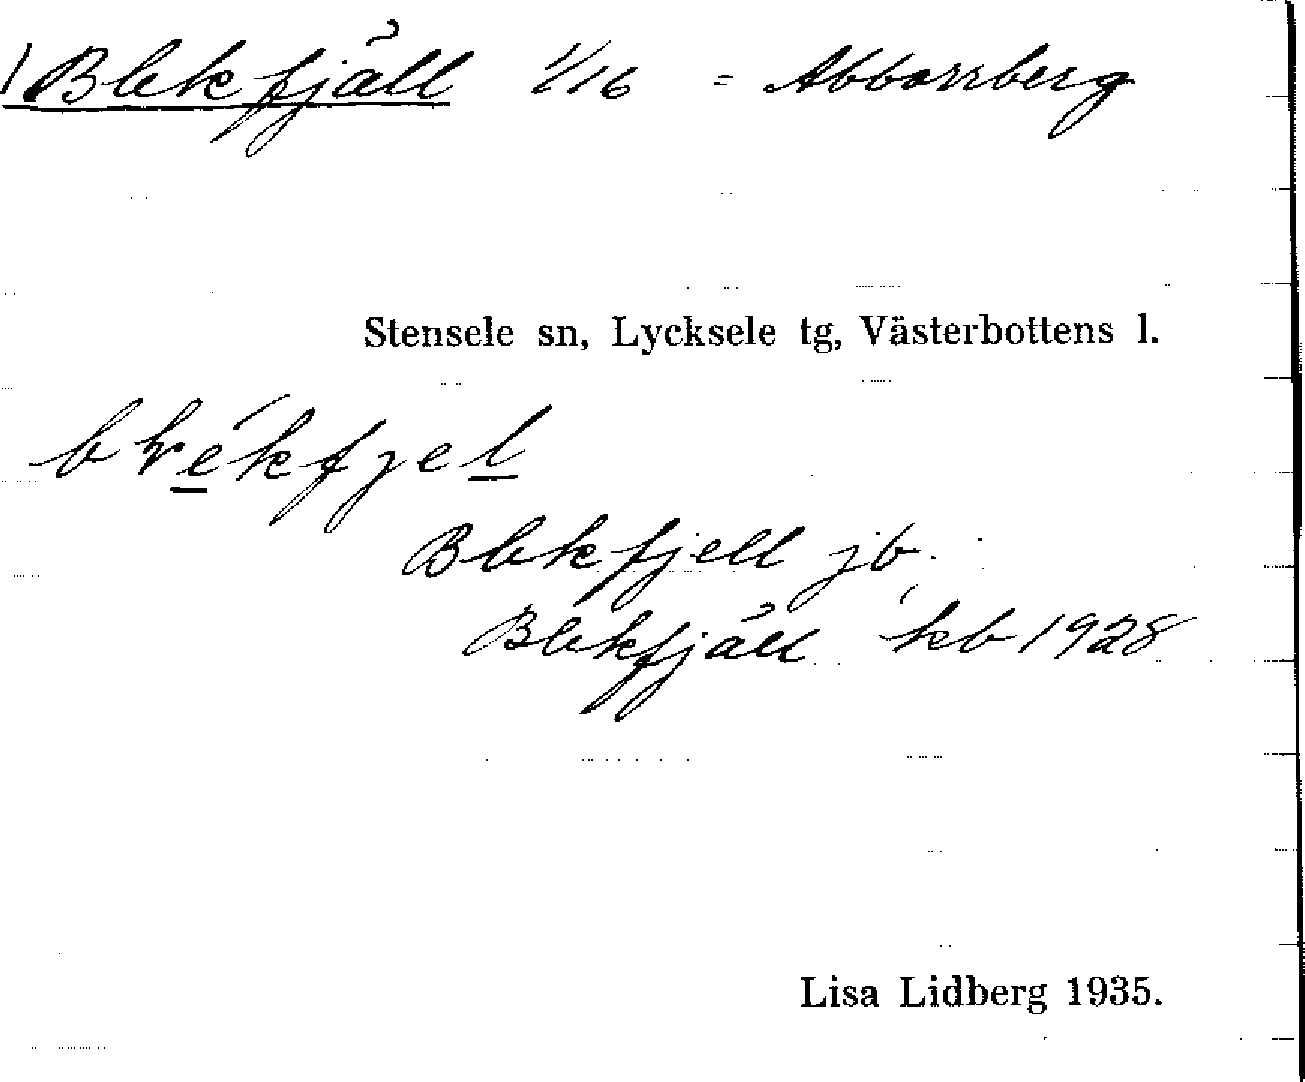 1) Blekfjäll 1/16 = Abborrberg
Stensele sn, Lycksele tg, Västerbottens l.
Blekfjell jb.
Blekfjäll kb 1928
Lisa Lidberg 1935.